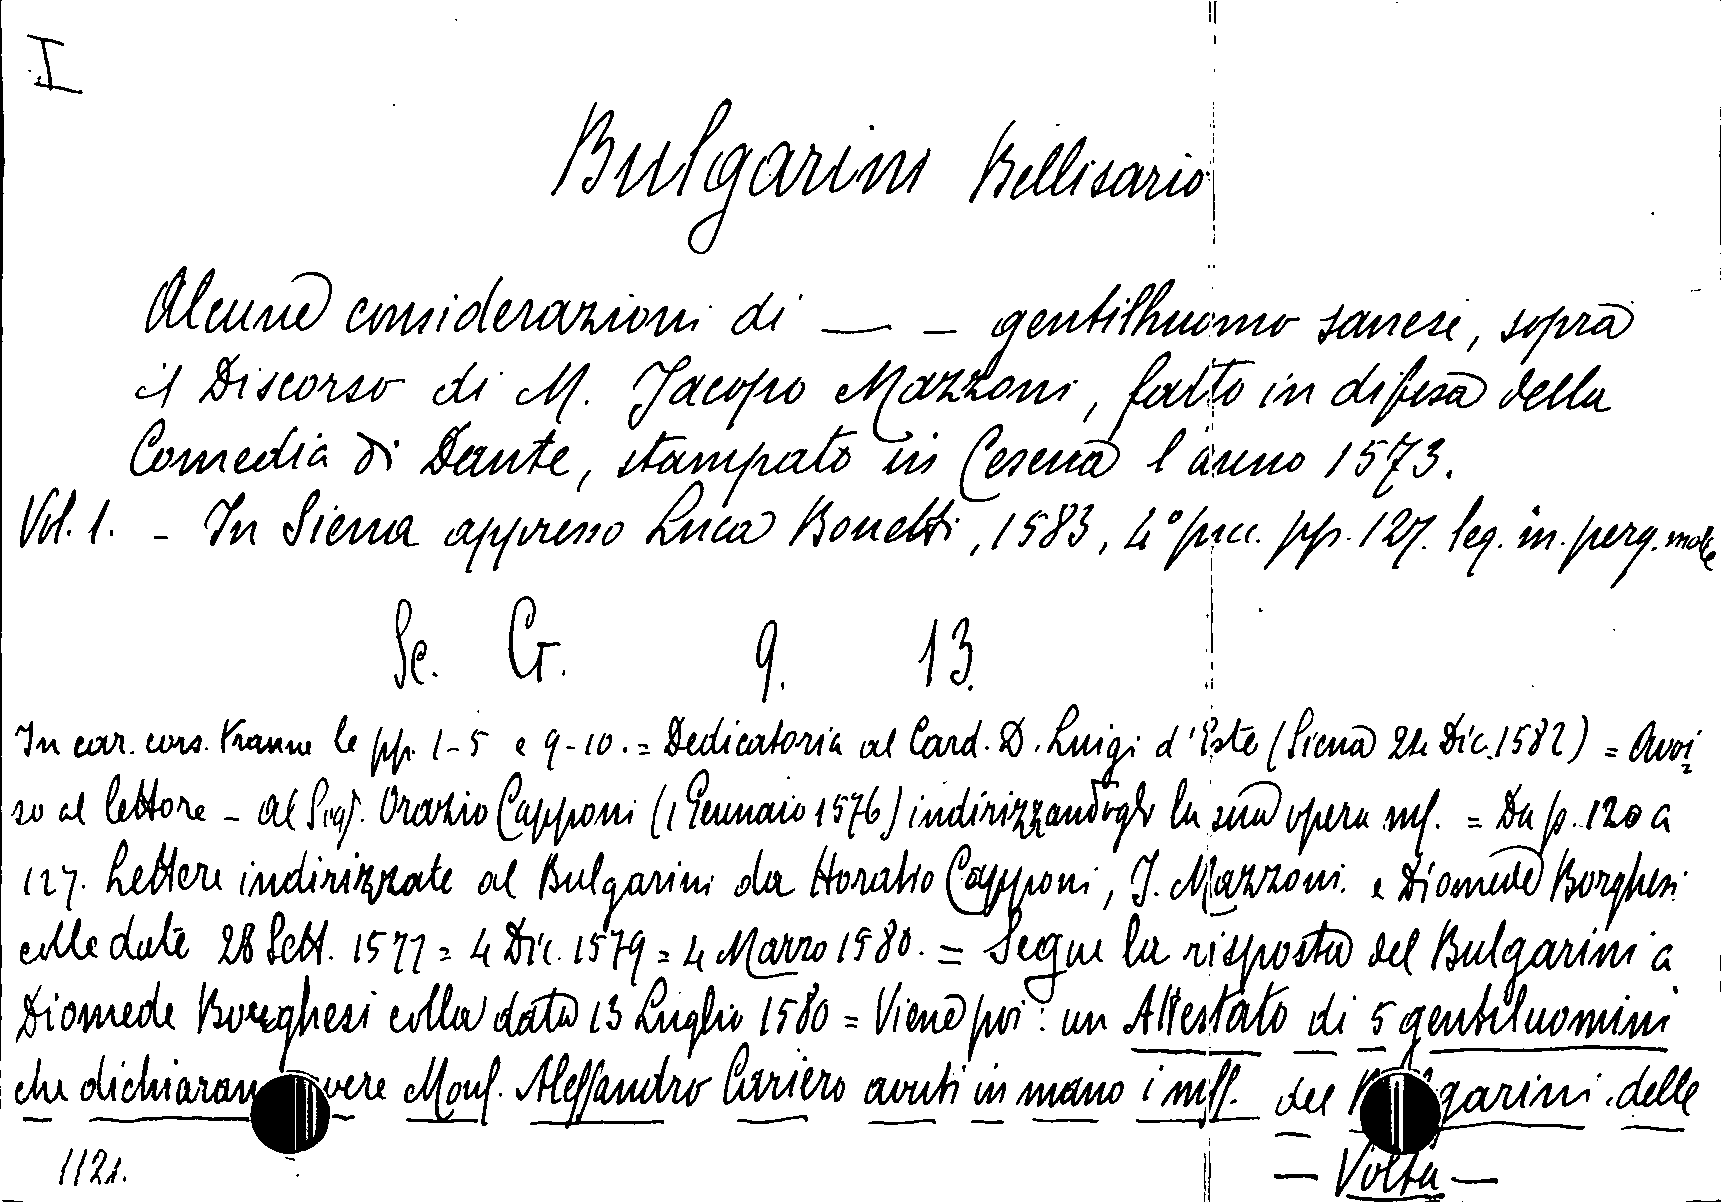 I
Bulgarini Bellisario
Alcune considerazioni di — — gentilhuomo sanese, sopra
il Discorso di M. Jacopo Mazzoni, fatto in difesa della
Comedia di Dante, stampato in Cesena l'anno 1573.
Vol. 1. - In Siena appresso Luca Bonetti, 1583, 4° picc. pp. 127. leg. in perg. molle
Se. Cr. 9. 13.
In car. cors. tranne le pp. 1-5 e 9-10. = Dedicatoria al Card. D. Luigi d'Este (Siena 24 Dic. 1582) = Avvi=
so al lettore - Al Sigr. Orazio Capponi (1 Gennaio 1576) indirizzandogli la sua opera ms. = Da p. 120 a
127. Lettere indirizzate al Bulgarini da Horatio Capponi, J. Mazzoni. e Diomede Borghesi
colle date 28 Sett. 1577 = 4 Dic. 1579 = 4 Marzo 1580. = Segue la risposta del Bulgarini a
Diomede Borghesi colla data 13 Luglio 1580 = Viene poi: un Attestato di 5 gentiluomini
che dichiaran vere Mons. Alessandro Cariero avuti in mano i mss. del Bulgarini delle
1121. — Volta —